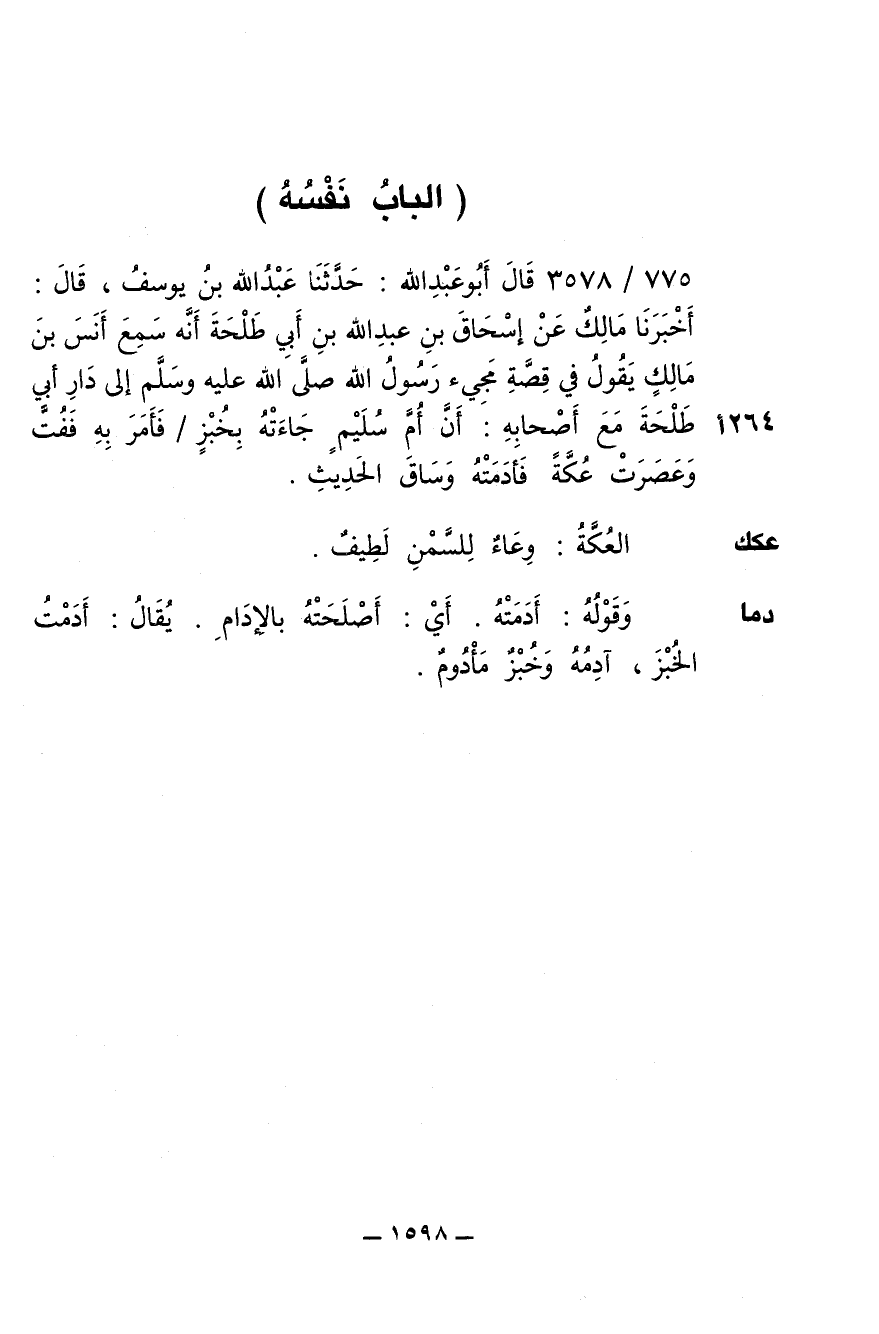 ( البابُ نَفْسُهُ )
٧٧٥ / ٣٥٧٨ قَالَ أَبُوعَبْدِالله : حَدَّثَنَا عَبْدُالله بنُ يوسفُ ، قَالَ :
أَخْبَرَنَا مَالِكٌ عَنْ إسْحَاقَ بنِ عبدِالله بنِ أَبِي طَلْحَةَ أَنَّه سَمِعَ أَنَسَ بنَ
مَالِكٍ يَقُولُ في قِصَّةِ مَجِيء رَسُولُ الله صلَّى الله عليه وسَلَّم إلى دَارِ أبي
١٢٦٤أ طَلْحَةَ مَعَ أَصْحابِهِ : أَنَّ أُمَّ سُلَيْمٍ جَاءَتْهُ بِخُبْزٍ / فَأَمَرَ بِهِ فَفُتَّ
وَعَصَرَتْ عُكَّةً فَأدَمَتْهُ وَسَاقَ الحَدِيثِ .
عكك العُكَّةُ : وِعَاءٌ لِلسَّمْنِ لَطِيفٌ .
دما وَقَوْلُهُ : أَدَمَتْهُ . أَيْ : أَصْلَحَتْهُ بالإِدَامِ . يُقَالُ : أَدَمْتُ
الخُبْزَ ، آدِمُهُ وَخُبْزٌ مَأْدُومٌ .
ـ ١٥٩٨ ـ